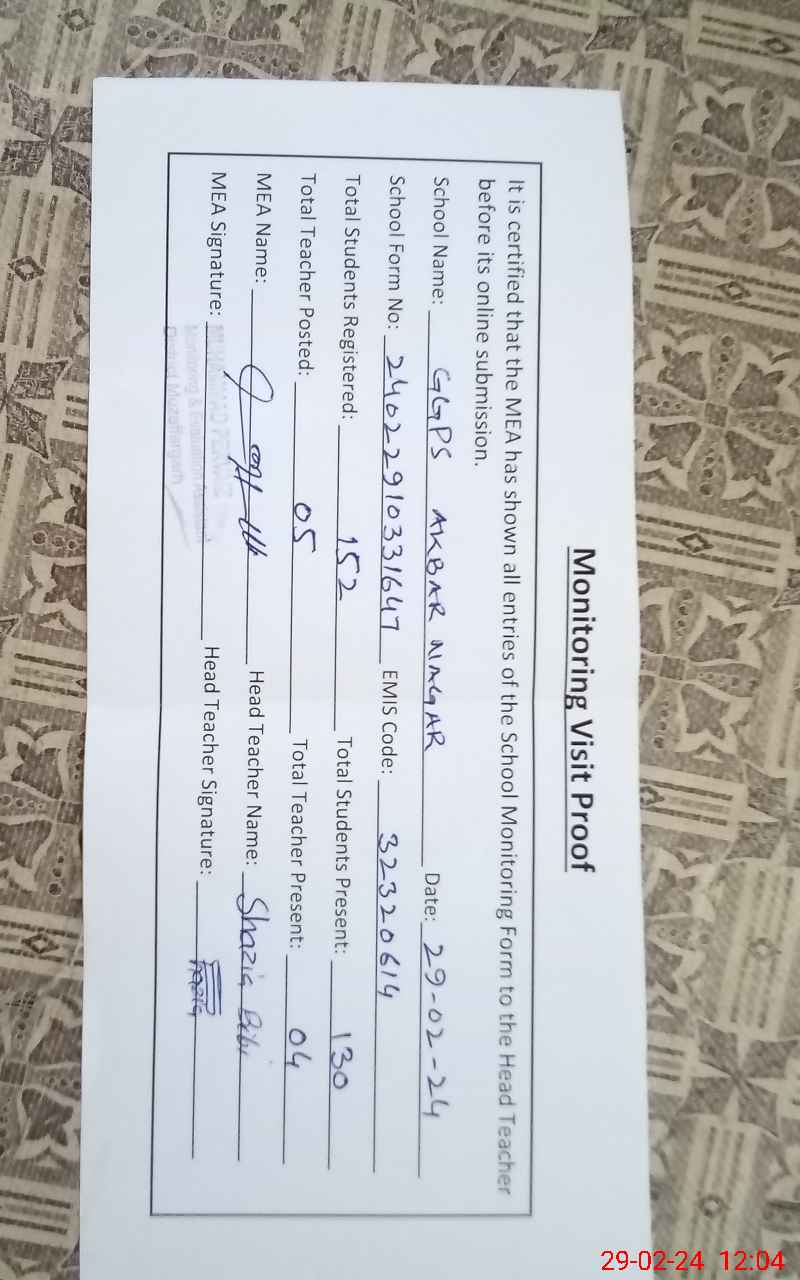 Monitoring Visit Proof
It is certified that the MEA has shown all entries of the School Monitoring Form to the Head Teacher
before its online submission.
School Name: GGPS AKBAR NAGAR Date: 29-02-24
School Form No: 24022910331647 EMIS Code: 32320614
Total Students Registered: 152 Total Students Present: 130
Total Teacher Posted: 05 Total Teacher Present: 04
MEA Name: Head Teacher Name: Shazia Bibi
MEA Signature: Head Teacher Signature: Shazia
MUHAMMAD
Monitoring & Evaluation Assistant
District Muzaffargarh
29-02-24 12:04